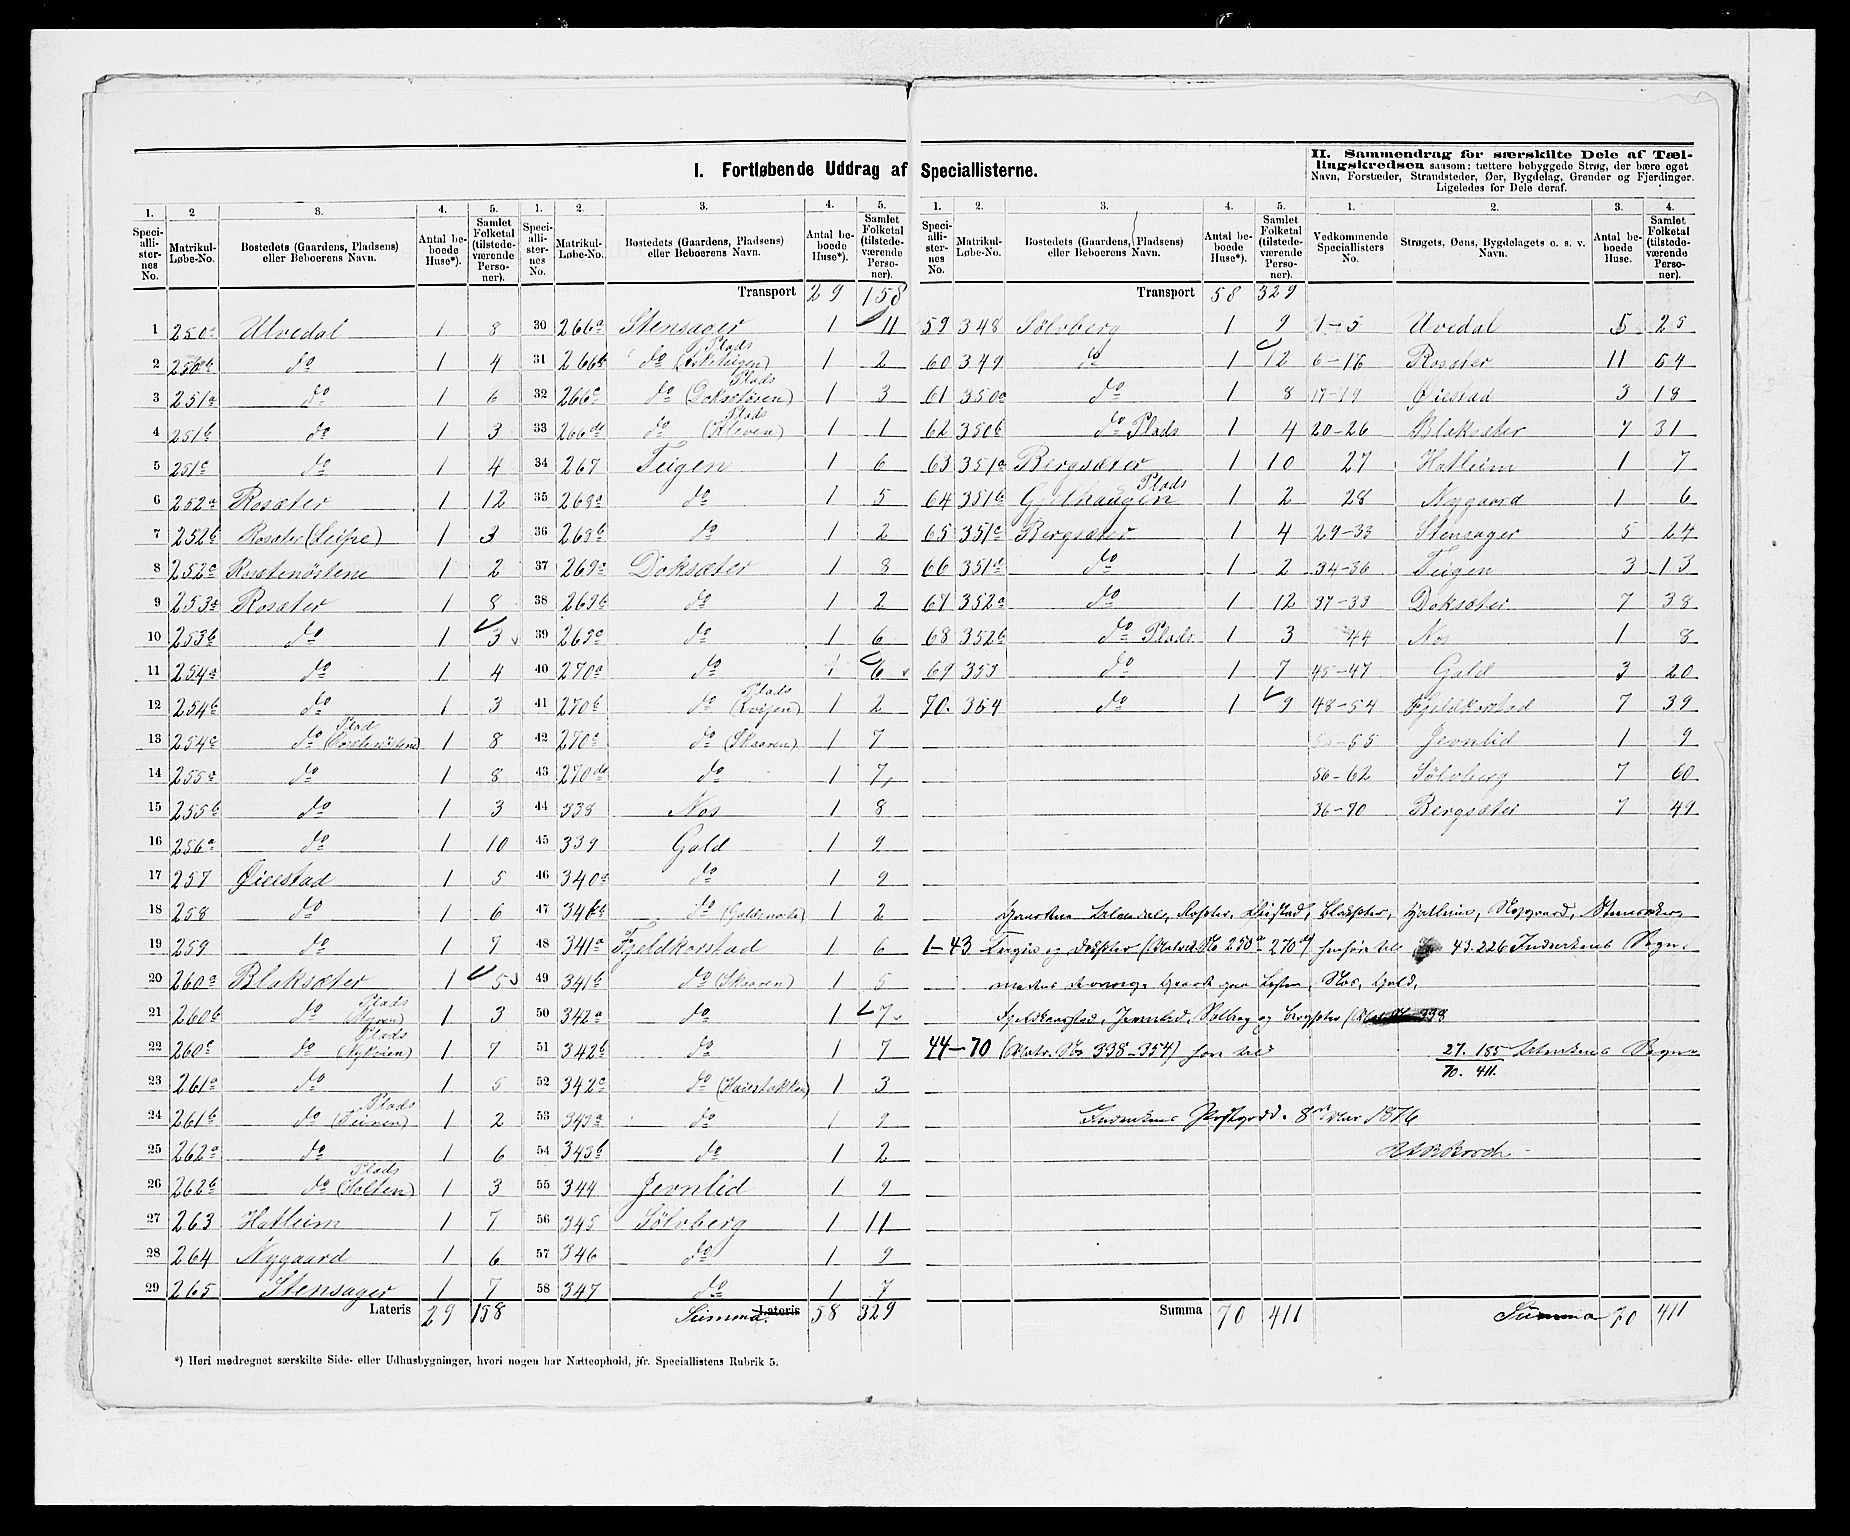 I. Fortløbende Uddrag af Speciallisterne.
II. Sammendrag for særskilte Dele af Tæl-
lingskredsen saasom: tættere bebyggede Strøg, der bære eget
Navn, Forstæder, Strandsteder, Øer, Bygdelag, Grender og Fjerdinger.
Ligeledes for Dele deraf.
1. 2 3. 4. 5.
Speciallisternes No. Matrikul-Løbe-No. Bostedets (Gaardens, Pladsens) eller Beboerens Navn. Antal beboede Huse*). Samlet Folketal (tilstedeværende Personer).
1 250a Uvedal 1 8
2 250b do 1 4
3 251a do 1 6
4 251b do 1 3
5 251c do 1 4
6 252a Rosæter 1 12
7 252b Rosæter (Leipe) 1 3
8 252c Rosætenöstene 1 2
9 253a Rosæter 1 8
10 253b do 1 3
11 254a do 1 4
12 254b do 1 3
13 254c do Plads 1 8
14 255a do 1 8
15 255b do 1 3
16 256a do 1 10
17 257 Øiestad 1 5
18 258 do 1 6
19 259 do 1 7
20 260a Blaksæter 1 5
21 260b do Plads 1 3
22 260c do Plads 1 7
23 261a do 1 5
24 261b do Plads 1 2
25 262a do 1 6
26 262b do Plads (Holten) 1 3
27 263 Hatleim 1 7
28 264 Nygaard 1 6
29 265 Stensager 1 7
Lateris 29 158
1. 2. 3. 4. 5.
Speciallisternes No. Matrikul-Løbe-No. Bostedets (Gaardens, Pladsens) eller Beboerens Navn. Antal beboede Huse*). Samlet Folketal (tilstedeværende Personer).
Transport 29 158
30 266a Stensager 1 11
31 266b do Plads 1 2
32 266c do Plads 1 3
33 266d do Plads (Kleven) 1 1
34 267 Teigen 1 6
35 269a do 1 5
36 269b do 1 2
37 269a Doksæter 1 8
38 269b do 1 2
39 269c do 1 6
40 270a do 1 6
41 270b do Plads 1 2
42 270c do (Skaaren) 1 7
43 270d do 1 7
44 338 Nos 1 8
45 339 Gald 1 9
46 340a do 1 9
47 340b do 1 2
48 341a Fjeldkorstad 1 6
49 341b do (Skaaren) 1 5
50 342a do 1 7
51 342b do 1 7
52 342c do 1 3
53 343a do 1 9
54 343b do 1 2
55 344 Jevnlid 1 9
56 345 Sölvberg 1 11
57 346 do 1 9
58 347 do 1 7
Summa. Lateris 58 329
1. 2. 3. 4. 5.
Speciallisternes No. Matrikul-Løbe-No. Bostedets (Gaardens, Pladsens) eller Beboerens Navn. Antal beboede Huse*). Samlet Folketal (tilstedeværende Personer).
Transport 58 329
59 348 Sölvberg 1 9
60 349 do 1 12
61 350a do 1 8
62 350b do Plads 1 4
63 351a Bergsæter 1 10
64 351b Gjelhaugen Plads 1 2
65 351c Bergsæter 1 4
66 351d do 1 2
67 352a do 1 12
68 352b do Plads 1 3
69 353 do 1 7
70. 354 do 1 9
Summa 70 411
1. 2. 3. 4.
Vedkommende Speciallisters No. Strøgets, Øens, Bygdelagets o. s. v. Navn. Antal beboede Huse. Samlet Folketal (tilstedeværende Personer).
1-5 Uvedal 5 25
6-16 Rosæter 11 64
17-19 Øiestad 3 18
20-26 Blaksæter 7 31
27 Hatleim 1 7
28 Nygaard 1 6
29-33 Stensager 5 24
34-36 Teigen 3 13
37-33 Doksæter 7 38
44 Nos 1 8
45-47 Gald 3 20
48-54 Fjeldkorstad 7 39
55 Jevnlid 1 9
56-62 Sölvberg 7 60
36-70 Bergsæter 7 49
Summa 70 411
1-43 og (250a - 270d) 43. 226 Sogn,
Nos, Gald,
Jevnlid, og 338
44-70 (Matr. No 338-354) 27. 185 Sogn
70. 411.
8 1876
*) Heri medregnet særskilte Side- eller Udhusbygninger, hvori nogen har Natteophold, jfr. Speciallistens Rubrik 5.